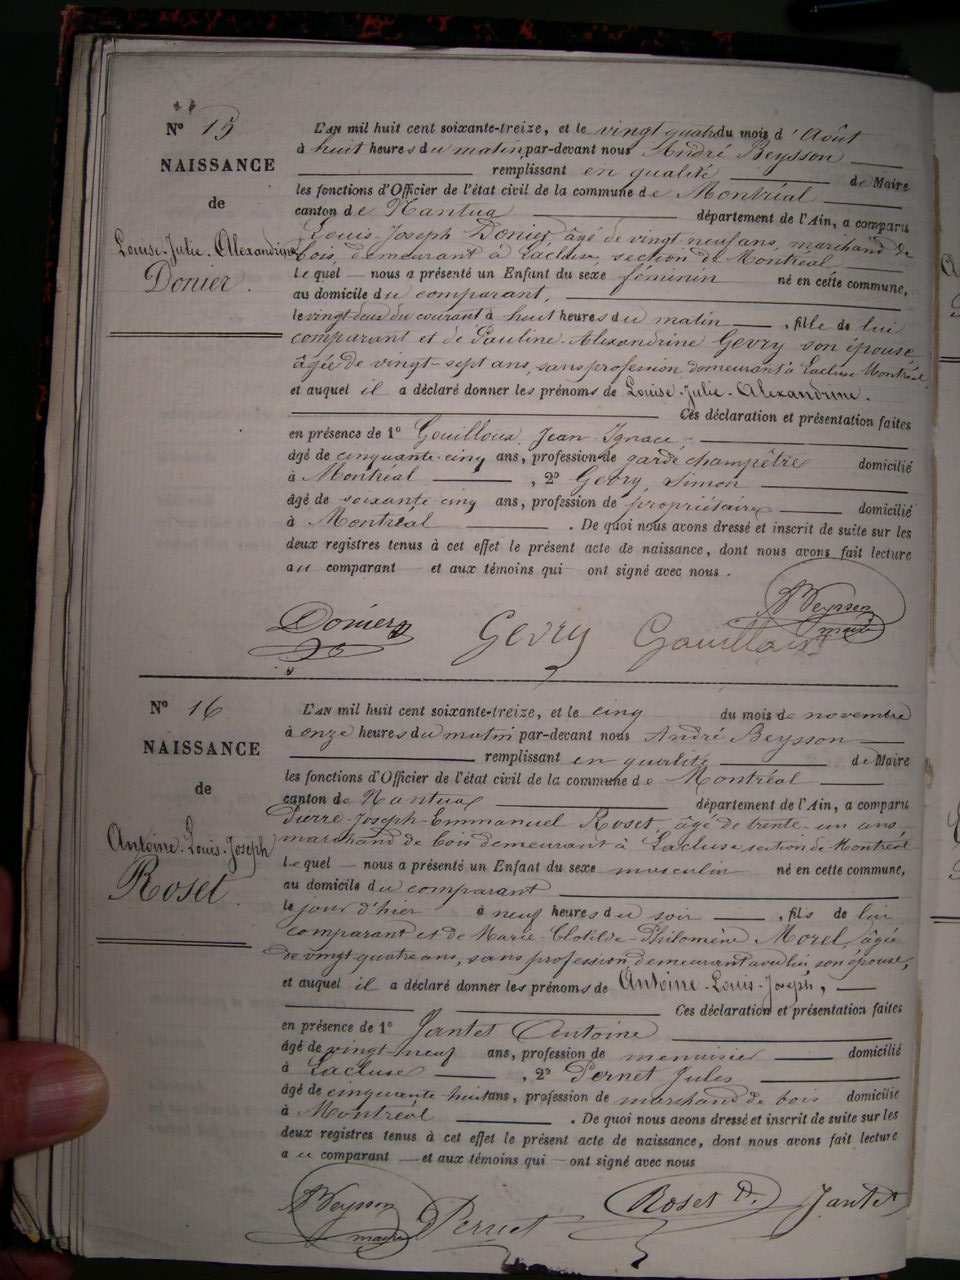 N° 15
NAISSANCE
de
Louise-Julie-Alexandrine
Donier.
L'AN mil huit cent soixante-treize, et le vingt quatre du mois d'Août
à huit heures du matin, par-devant nous André Beysson
remplissant en qualité de Maire
les fonctions d'Officier de l'état civil de la commune de Montréal
canton de Nantua département de l'Ain, a comparu
Louis-Joseph Donier, âgé de vingt-neuf ans, marchand de
bois, demeurant à Lacluse, section de Montréal
lequel nous a présenté un Enfant du sexe féminin né en cette commune,
au domicile du comparant,
le vingt-deux du courant à huit heures du matin, fille de lui
comparant et de Pauline-Alexandrine Gevry son épouse,
âgée de vingt-sept ans, sans profession demeurant à Lacluse Montréal,
et auquel il a déclaré donner les prénoms de Louise-Julie-Alexandrine.
Ces déclaration et présentation faites
en présence de 1° Gouilloux, Jean-Ignace,
âgé de cinquante-cinq ans, profession de garde champêtre domicilié
à Montréal, 2° Gevry, Simon
âgé de soixante cinq ans, profession de propriétaire domicilié
à Montréal. De quoi nous avons dressé et inscrit de suite sur les
deux registres tenus à cet effet le présent acte de naissance, dont nous avons fait lecture
au comparant et aux témoins qui ont signé avec nous.
Donier Gevry Gouilloux Beysson
maire
N° 16
NAISSANCE
de
Antoine-Louis-Joseph
Roset.
L'AN mil huit cent soixante-treize, et le cinq du mois de novembre
à onze heures du matin par-devant nous André Beysson
remplissant en qualité de Maire
les fonctions d'Officier de l'état civil de la commune de Montréal
canton de Nantua département de l'Ain, a comparu
Pierre-Joseph-Emmanuel Roset, âgé de trente-un ans,
marchand de bois demeurant à Lacluse section de Montréal
lequel nous a présenté un Enfant du sexe masculin né en cette commune,
au domicile du comparant
le jour d'hier à neuf heures du soir, fils de lui
comparant et de Marie-Clotilde-Philomène Morel, âgée
de vingt quatre ans, sans profession demeurant avec lui, son épouse,
et auquel il a déclaré donner les prénoms de Antoine-Louis-Joseph,
Ces déclaration et présentation faites
en présence de 1° Jantet Antoine
âgé de vingt-neuf ans, profession de menuisier domicilié
à Lacluse, 2° Pernet Jules
âgé de cinquante huit ans, profession de marchand de bois domicilié
à Montréal. De quoi nous avons dressé et inscrit de suite sur les
deux registres tenus à cet effet le présent acte de naissance, dont nous avons fait lecture
au comparant et aux témoins qui ont signé avec nous
Beysson Pernet Roset Jantet
maire